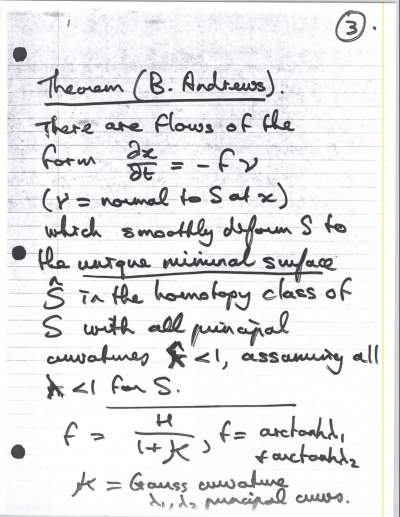 3.
Theorem (B. Andrews).
There are flows of the
form ∂x/∂t = -f ν
(ν = normal to S at x)
which smoothly deform S to
the unique minimal surface
Ŝ in the homotopy class of
S with all principal
curvatures λ̂ <1, assuming all
λ <1 for S.
f = H/(1+K), f = arctanh λ₁
+ arctanh λ₂
K = Gauss curvature
λ₁, λ₂ principal curvs.